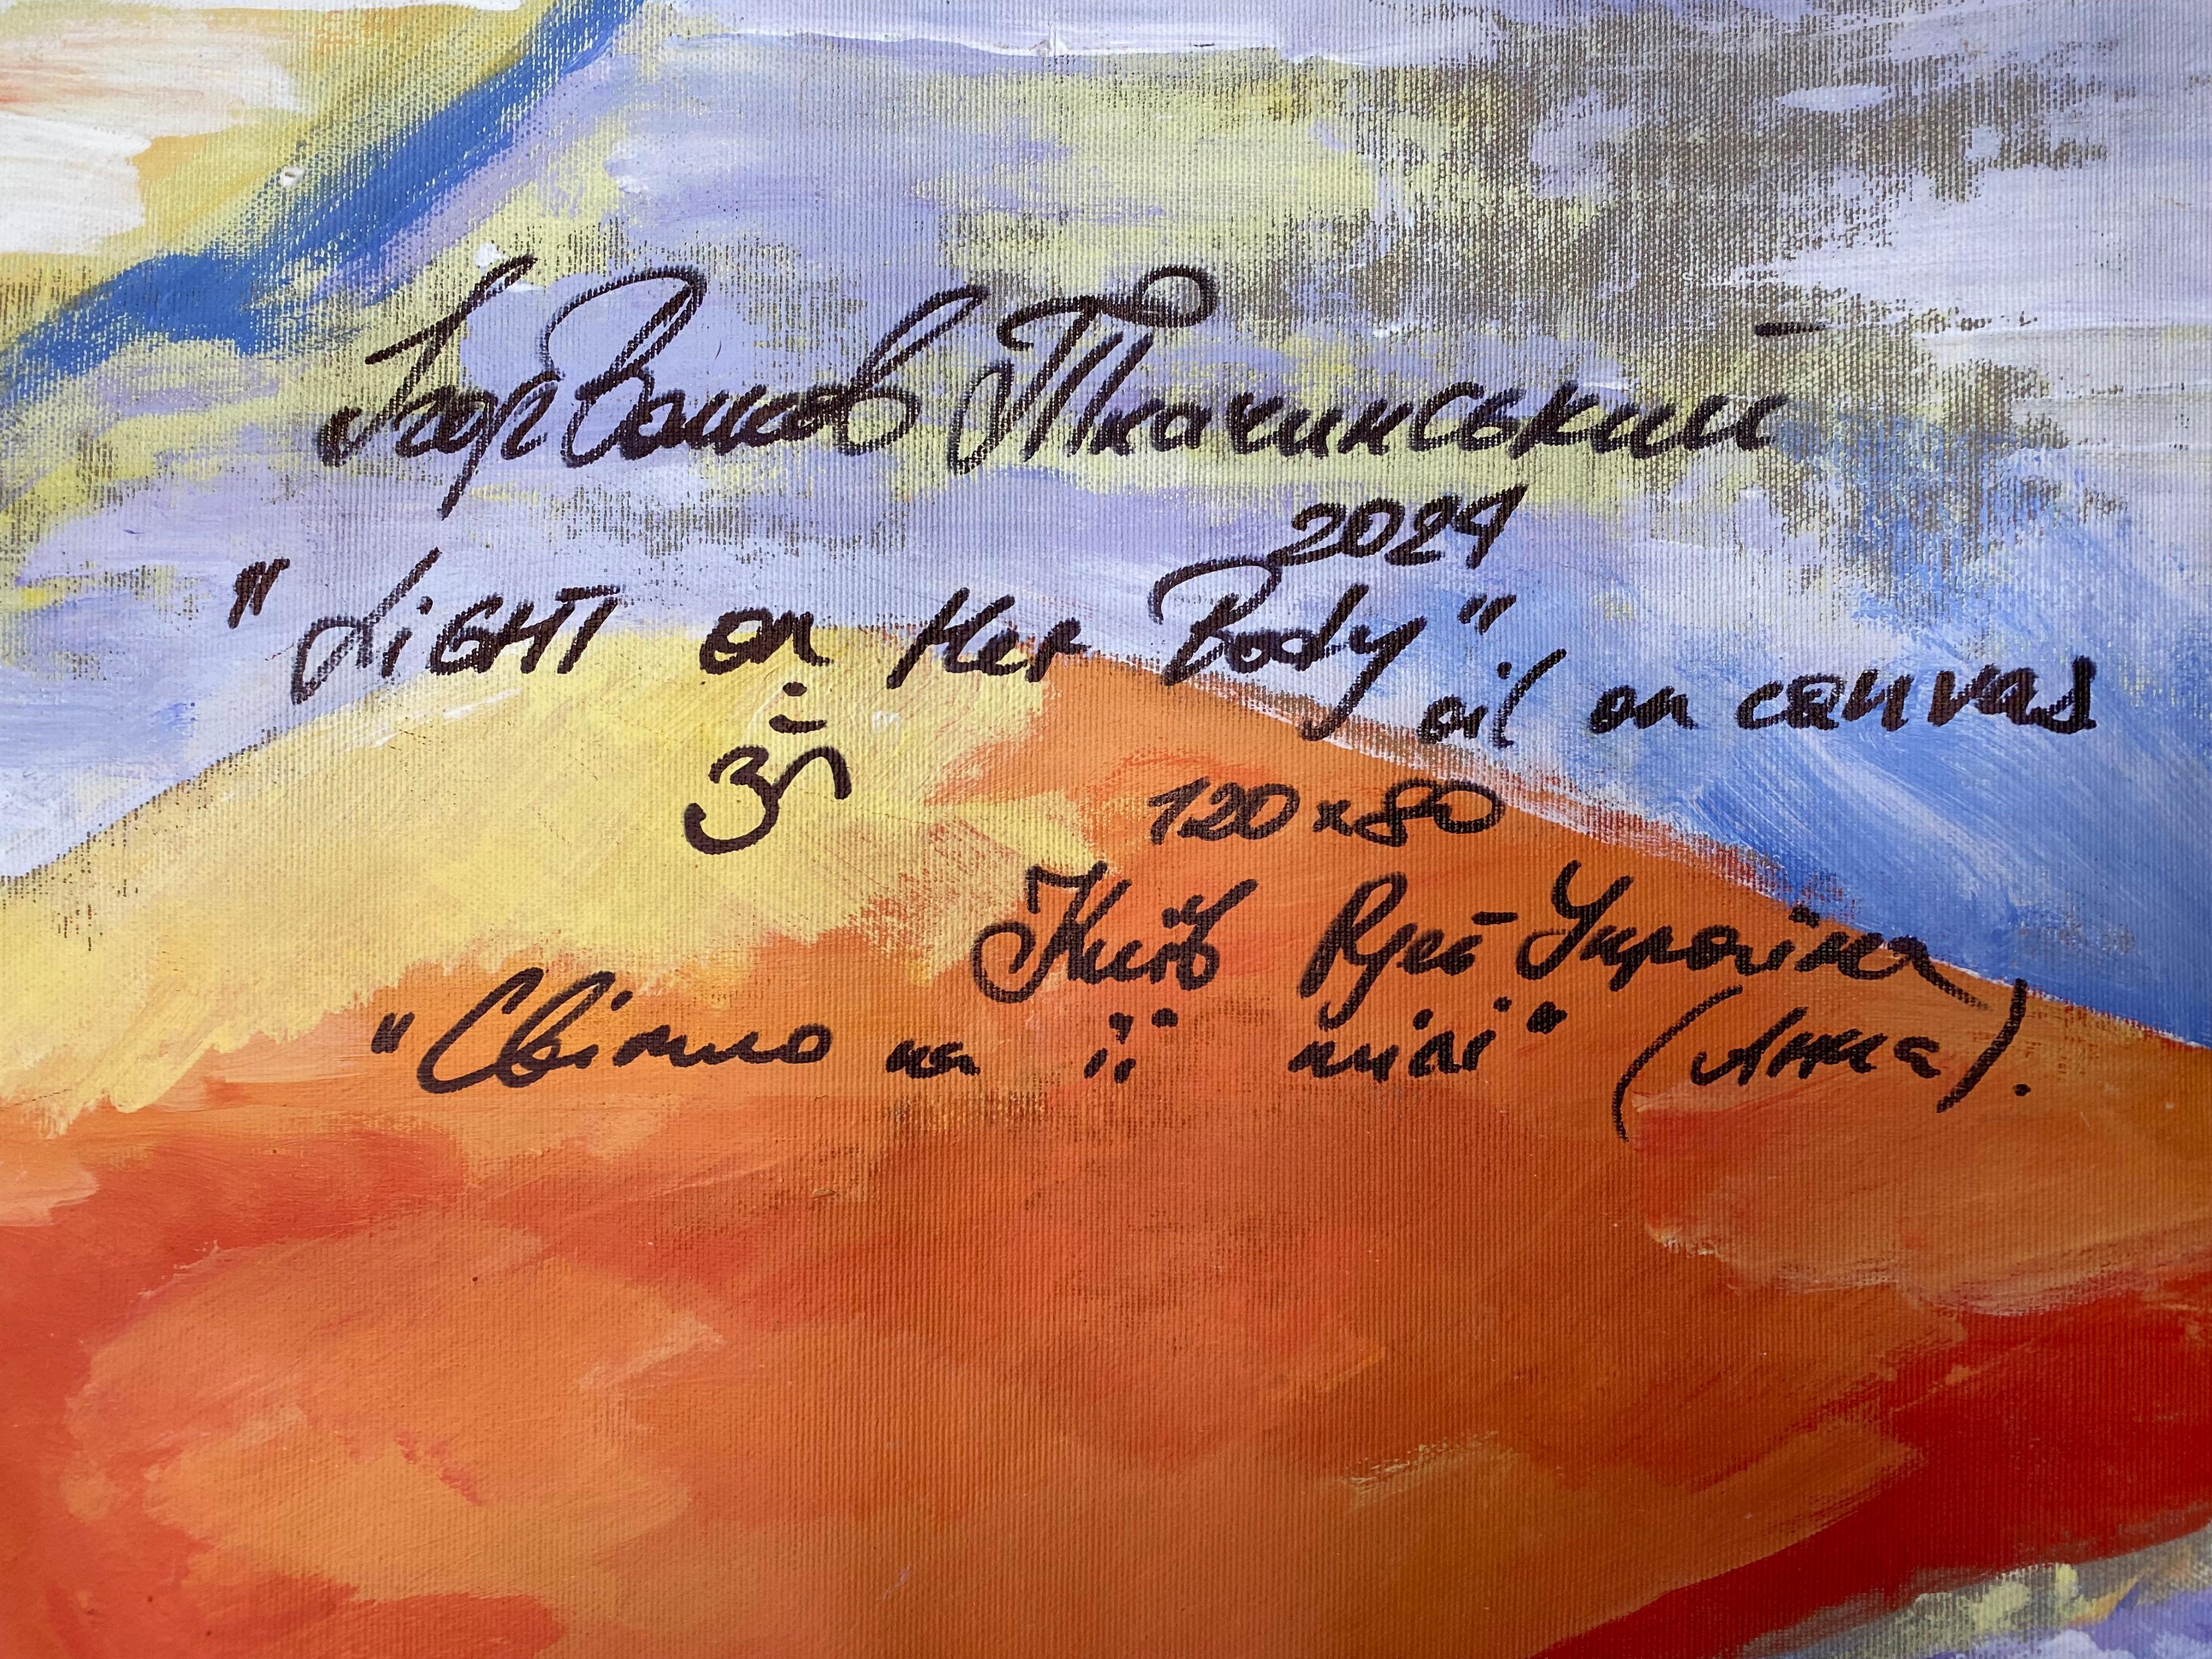 Ігор Волков Ткачинський
2024
"LiGHT on Her Body"
oil on canvas
ॐ
120 x 80
Київ Русь Україна
"Світло на її тілі" (Анна).